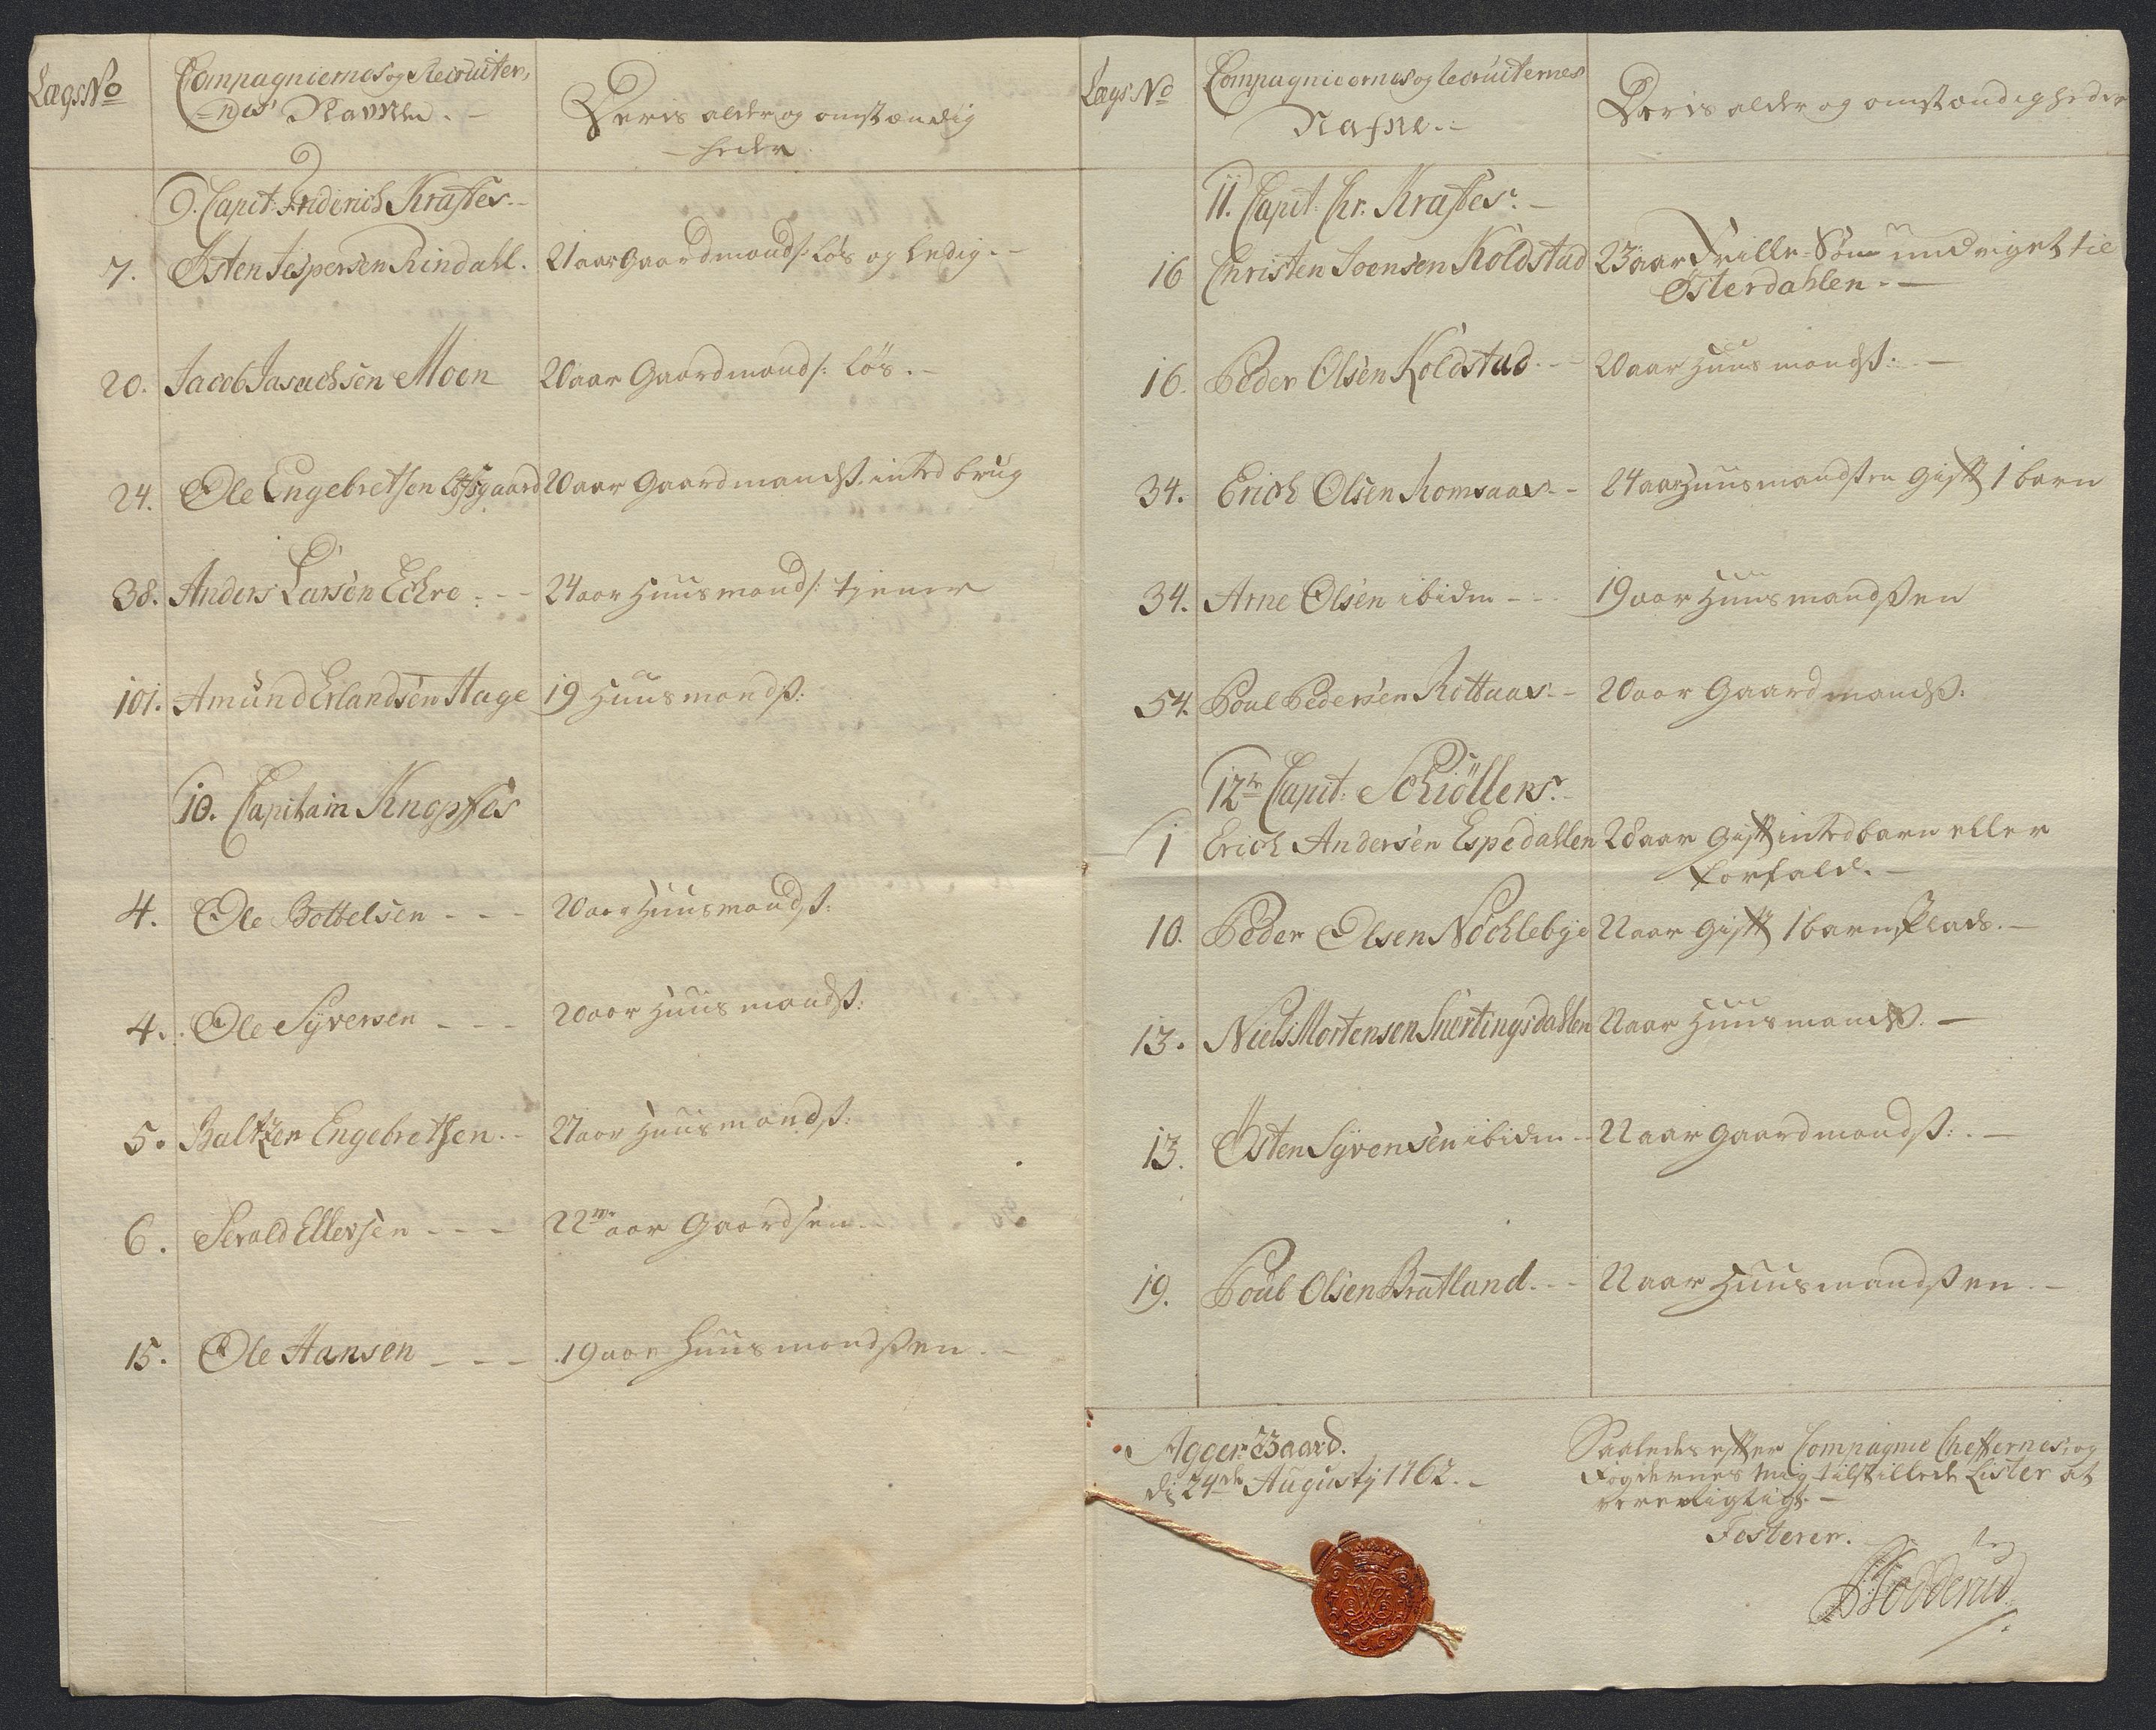 Lægs No
Compagniernes og Recruiter,
=nes Navne. -
Deris alder og omstændig
-heder
9. Capit: Friderich Kraftes. -
7. Østen Jespersen Rindahl. 21 aar Gaardmands: løs og ledig. -
20. Jacob Jasachsen Moen 20 aar Gaardmands: løs. -
24. Ole Engebretsen Løfsgaard 20 aar Gaardmandss. inted brug
38. Anders Larsen Echre - - - 24 aar Huusmands: tjener
101. Amund Erlandsen Hage 19 Huusmandss:
10. Capitain Knopffes
4. Ole Bottelsen - - - 20 aar Huusmandss:
4. Ole Syversen - - - 20 aar Huusmandss:
5. Baltzer Engebretsen. - 21 aar Huusmandss:
6. Serald Ellersen - - - 22 aar Gaardsen.
15. Ole Hansen - - - 19 aar Huusmandssen. -
Lægs No
Compagniernes og Recruiternes
Nafne. -
Deris alder og omstændigheder
11. Capit: Chr. Kraftes. -
16 Christen Joensen Koldstad 23 aar Frille-Søn undviget til
Østerdahlen. -
16. Peder Olsen Koldstad. - 20 aar Huusmandss: -
34. Erich Olsen Romsaas. - 24 aar Huusmandssen Gift 1 barn
34. Arne Olsen ibidm - - 19 aar Huusmandssen
54. Poul Pedersen Rottaas. - 20 aar Gaardmandss.
12te Capit: Schiøllers. -
1 Erich Andersen Espedahlen 28 aar Gift inted barn eller
forfald. -
10. Peder Olsen Nøchlebye 22 aar Gift 1 barn, Plads. -
13. Niels Mortensen Snertingsdahlen 22 aar Huusmandss. -
13. Østen Syversen ibidm - 22 aar Gaardmandss: -
19. Poul Olsen Bratland. - - 22 aar Huusmandssen. -
Agger Baard.
d: 24de Augustj 1762. -
Saaledes efter Compagnie Cheffernes, og
Fogdernes mig tilstillede Lister at
være rigtigt. -
Testerer.